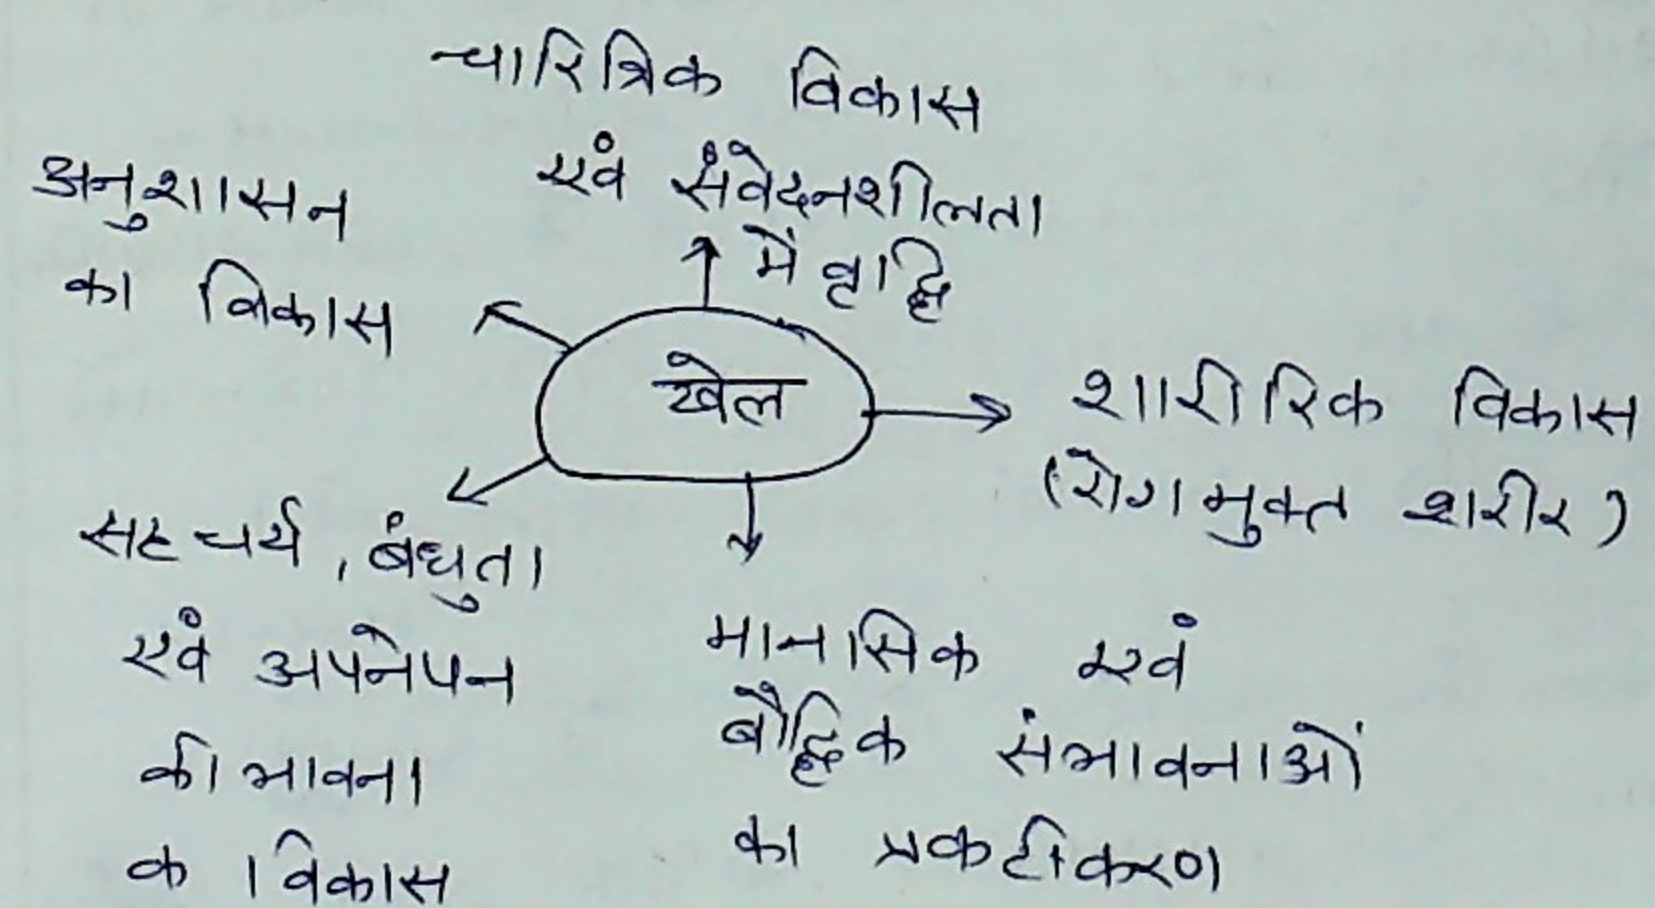 चारित्रिक विकास
एवं संवेदनशीलता
में वृद्धि
अनुशासन
का विकास
खेल
शारीरिक विकास
(रोगमुक्त शरीर)
सहचर्य, बंधुता
एवं अपनेपन
की भावना
का विकास
मानसिक एवं
बौद्धिक संभावनाओं
का प्रकटीकरण